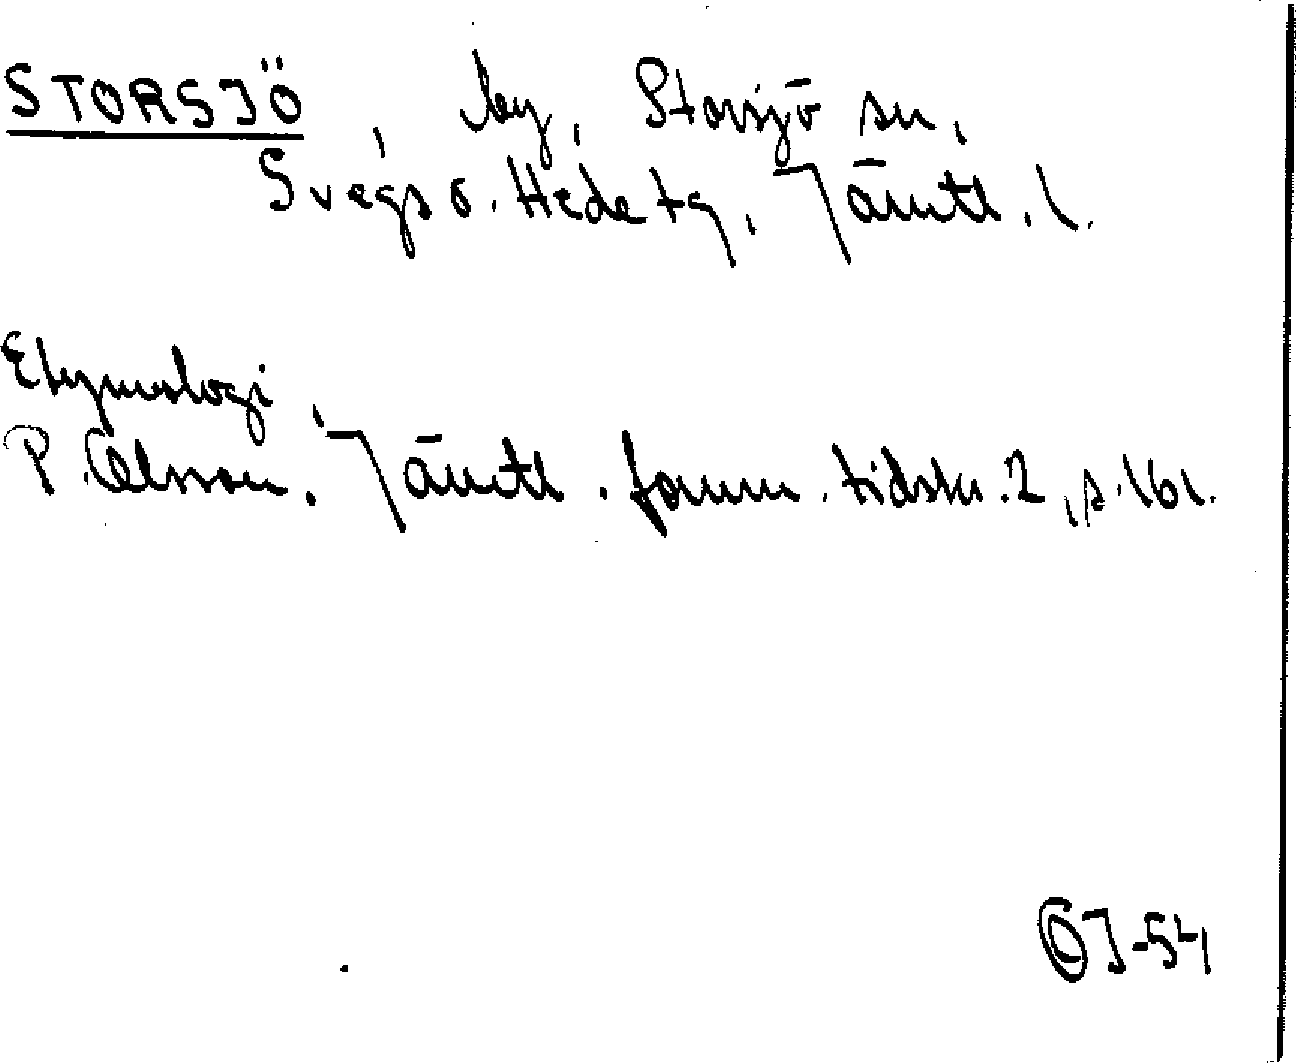 STORSJÖ, by, Storsjö sn,
Svegs o. Hede tg, Jämtl. l.
Etymologi,
P. Olsson, Jämtl. fornm. tidskr. 2, s. 161.
OJ-54